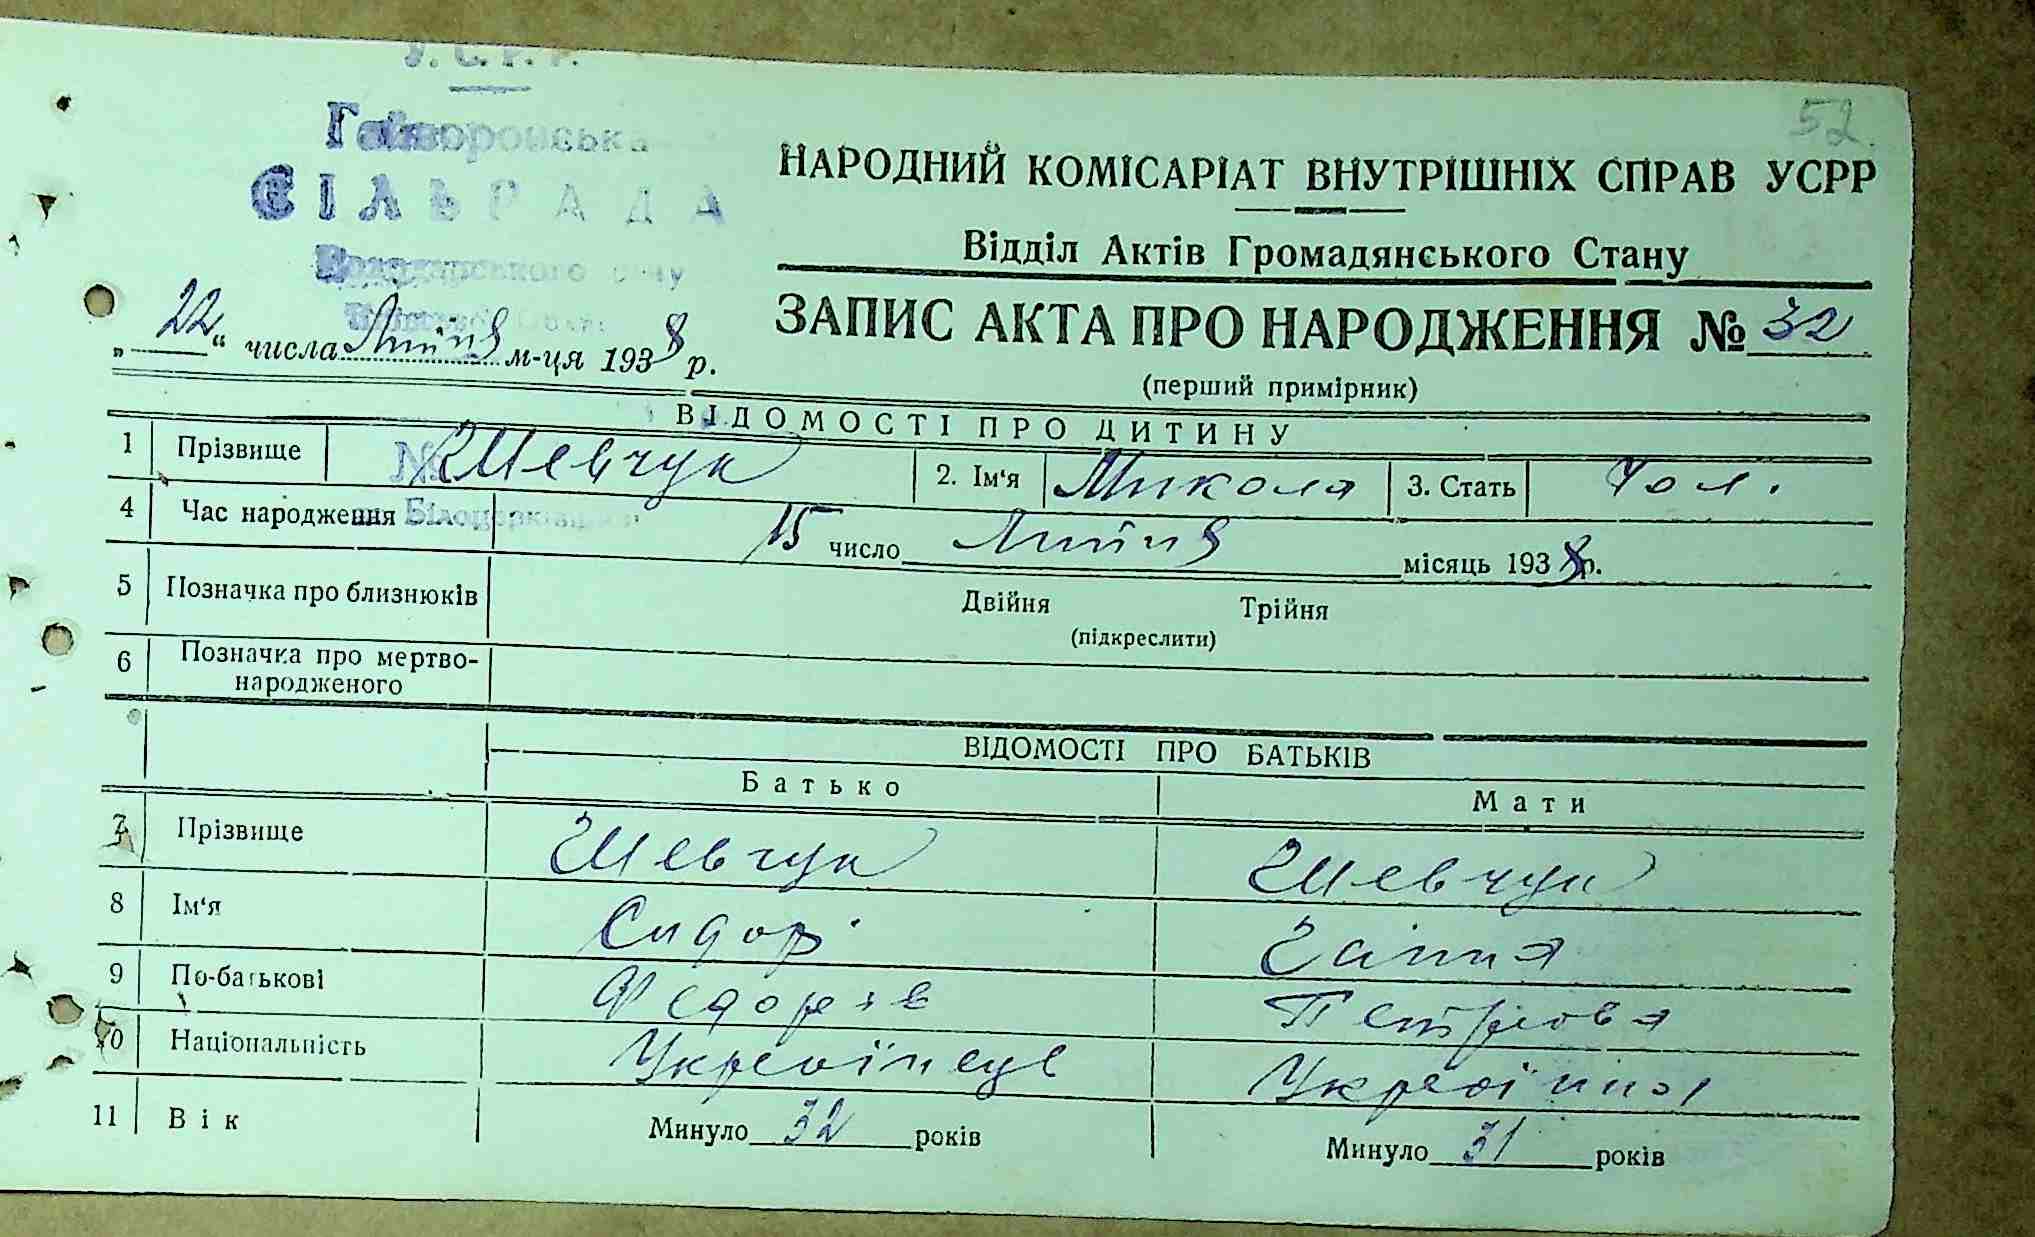 У.С.Р.Р.
Гайворонська
СІЛЬРАДА
Володарського р-ну
52
НАРОДНИЙ КОМІСАРІАТ ВНУТРІШНІХ СПРАВ УСРР
Відділ Актів Громадянського Стану
„22“ числа Липня м-ця 1938 р.
ЗАПИС АКТА ПРО НАРОДЖЕННЯ № 32
(перший примірник)
ВІДОМОСТІ ПРО ДИТИНУ
1 Прізвище № Шевчук 2. Ім‘я Микола 3. Стать Чол.
4 Час народження 15 число Липня місяць 1938 р.
5 Позначка про близнюків Двійня Трійня
(підкреслити)
6 Позначка про мертво-
народженого
ВІДОМОСТІ ПРО БАТЬКІВ
Батько Мати
7 Прізвище Шевчук Шевчук
8 Ім‘я Сидор Ганна
9 По-батькові Петрова
10 Національність Українець Українка
11 Вік Минуло 32 років Минуло 31 років